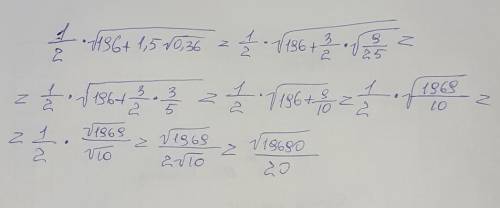 1/2 · √(196 + 1,5 √0,36) = 1/2 · √(196 + 3/2 · √(9/25)) =
= 1/2 · √(196 + 3/2 · 3/5) = 1/2 · √(196 + 9/10) = 1/2 · √(1969/10) =
= 1/2 · √1969/√10 = √1969/(2√10) = √19690/20